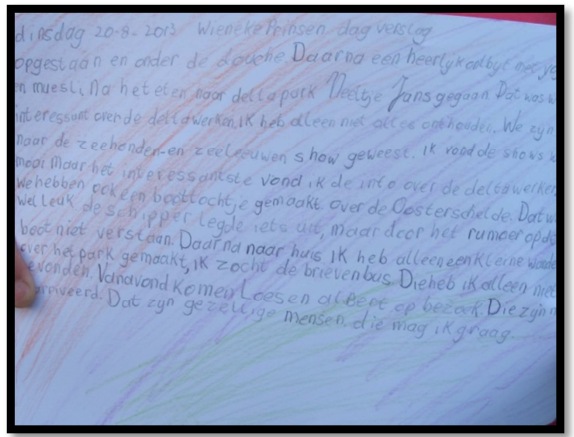 dinsdag 20-8-2013 Wieneke Prinsen dagverslag
opgestaan en onder de douche. Daarna een heerlijk ontbijt met yo
en muesli. Na het eten naar deltapark Neeltje Jans gegaan. Dat was
interessant over de deltawerken. Ik heb alleen niet alles onthouden. We zijn
naar de zeehonden- en zeeleeuwen show geweest. Ik vond de shows
mooi maar het interessantste vond ik de info over de deltawerken
We hebben ook een boottochtje gemaakt over de Oosterschelde. Dat w
wel leuk de schipper legde iets uit, maar door het rumoer op d
boot niet verstaan. Daarna naar huis ik heb alleen een kleine wande
over het park gemaakt, ik zocht de brievenbus. Die heb ik alleen niet
gevonden. Vanavond komen Loes en albert op bezoek. Die zijn n
arriveerd. Dat zijn gezellige mensen, die mag ik graag.